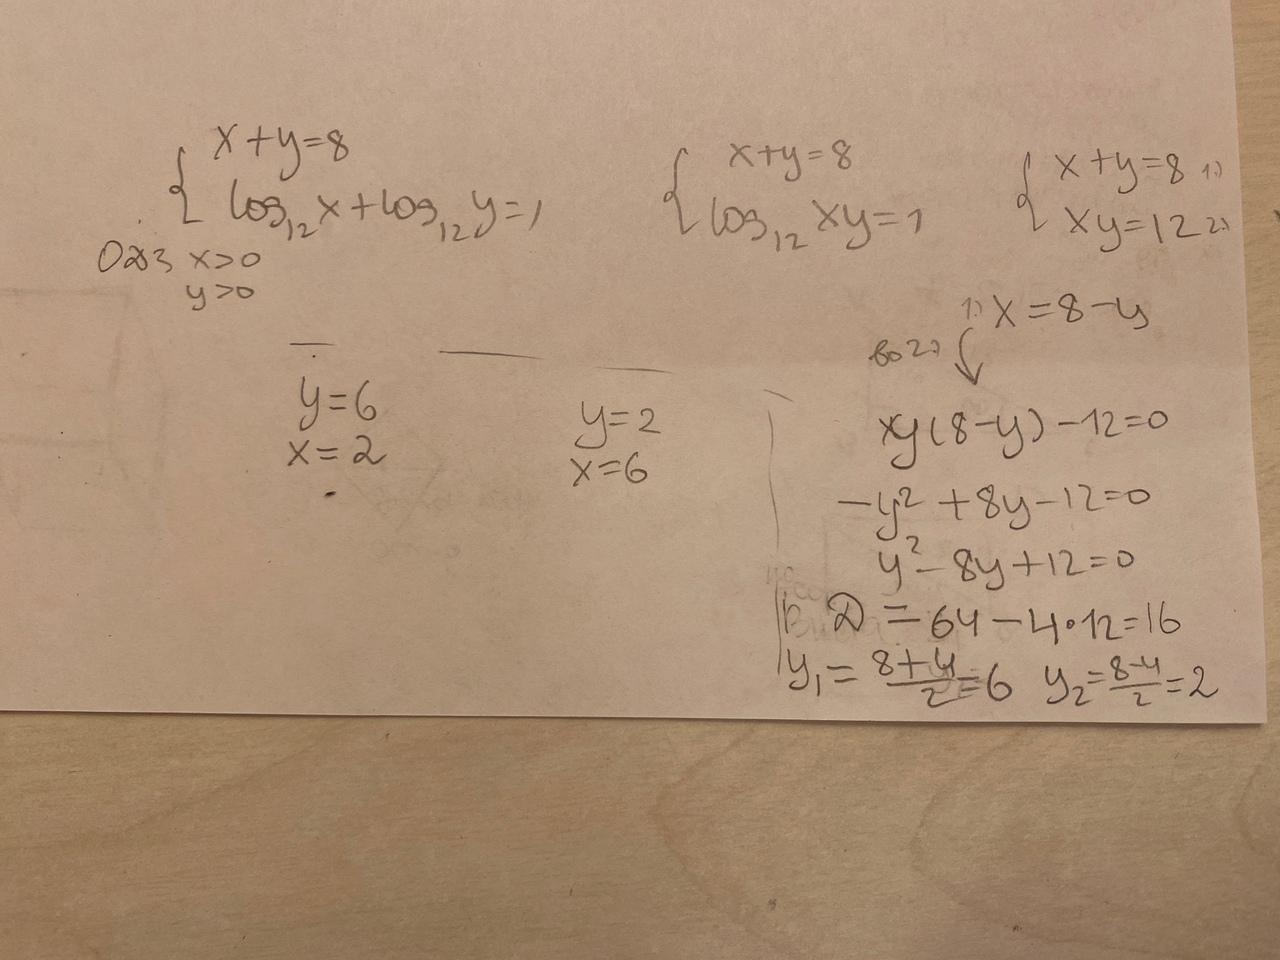 x+y=8
log₁₂x+log₁₂y=1
ОДЗ x>0
y>0
x+y=8
log₁₂xy=1
x+y=8 1.)
xy=12 2.)
1.) x=8-y
во 2.)
xy(8-y)-12=0
-y²+8y-12=0
y²-8y+12=0
D=64-4·12=16
y₁=8+4/2=6 y₂=8-4/2=2
y=6
x=2
y=2
x=6